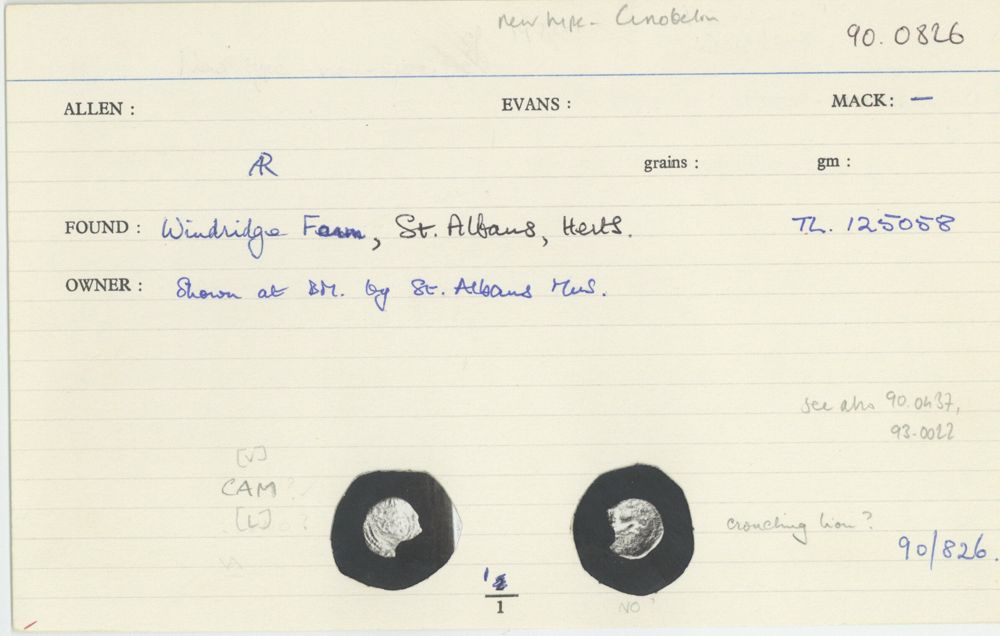 new type - Cunobelin
90.0826
ALLEN : EVANS : MACK: —
AR grains : gm :
FOUND : Windridge Farm, St. Albans, Herts. TL. 125058
OWNER : Shown at BM. by St. Albans Mus.
see also 90.0437,
93-0022
[V]
CAM ?
[L] ?
crouching lion?
90/826.
1
1
NO